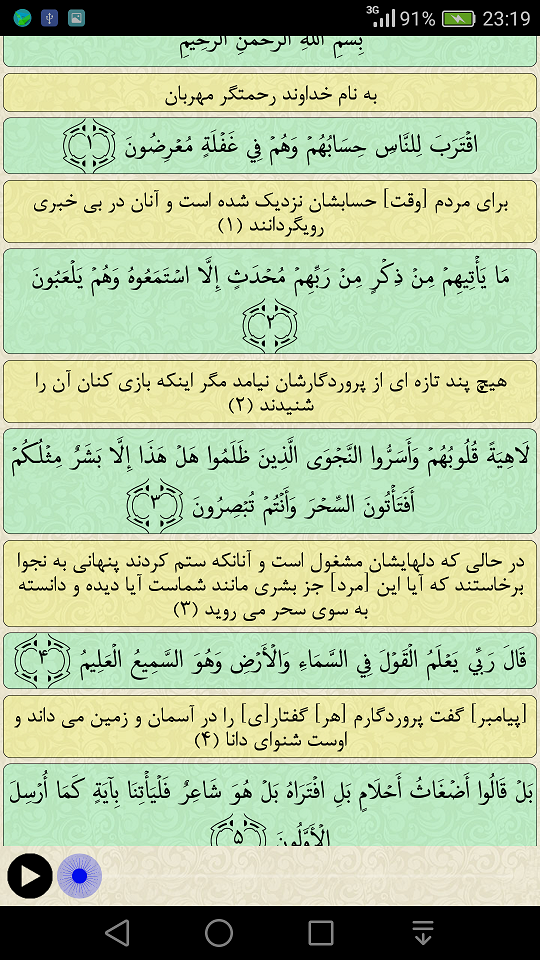 3G 91% 23:19
بِسْمِ اللَّهِ الرَّحْمَنِ الرَّحِيمِ
به نام خداوند رحمتگر مهربان
اقْتَرَبَ لِلنَّاسِ حِسَابُهُمْ وَهُمْ فِي غَفْلَةٍ مُعْرِضُونَ ﴿۱﴾
برای مردم [وقت] حسابشان نزدیک شده است و آنان در بی خبری
رویگردانند (۱)
مَا يَأْتِيهِمْ مِنْ ذِكْرٍ مِنْ رَبِّهِمْ مُحْدَثٍ إِلَّا اسْتَمَعُوهُ وَهُمْ يَلْعَبُونَ
﴿۲﴾
هیچ پند تازه ای از پروردگارشان نیامد مگر اینکه بازی کنان آن را
شنیدند (۲)
لَاهِيَةً قُلُوبُهُمْ وَأَسَرُّوا النَّجْوَى الَّذِينَ ظَلَمُوا هَلْ هَذَا إِلَّا بَشَرٌ مِثْلُكُمْ
أَفَتَأْتُونَ السِّحْرَ وَأَنْتُمْ تُبْصِرُونَ ﴿۳﴾
در حالی که دلهایشان مشغول است و آنانکه ستم کردند پنهانی به نجوا
برخاستند که آیا این [مرد] جز بشری مانند شماست آیا دیده و دانسته
به سوی سحر می روید (۳)
قَالَ رَبِّي يَعْلَمُ الْقَوْلَ فِي السَّمَاءِ وَالْأَرْضِ وَهُوَ السَّمِيعُ الْعَلِيمُ ﴿۴﴾
[پیامبر] گفت پروردگارم [هر] گفتار[ی] را در آسمان و زمین می داند و
اوست شنوای دانا (۴)
بَلْ قَالُوا أَضْغَاثُ أَحْلَامٍ بَلِ افْتَرَاهُ بَلْ هُوَ شَاعِرٌ فَلْيَأْتِنَا بِآيَةٍ كَمَا أُرْسِلَ
الْأَوَّلُونَ ﴿۵﴾